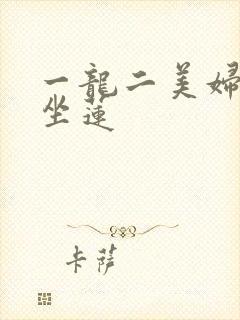 一龍二美婦
坐蓮
卡薩